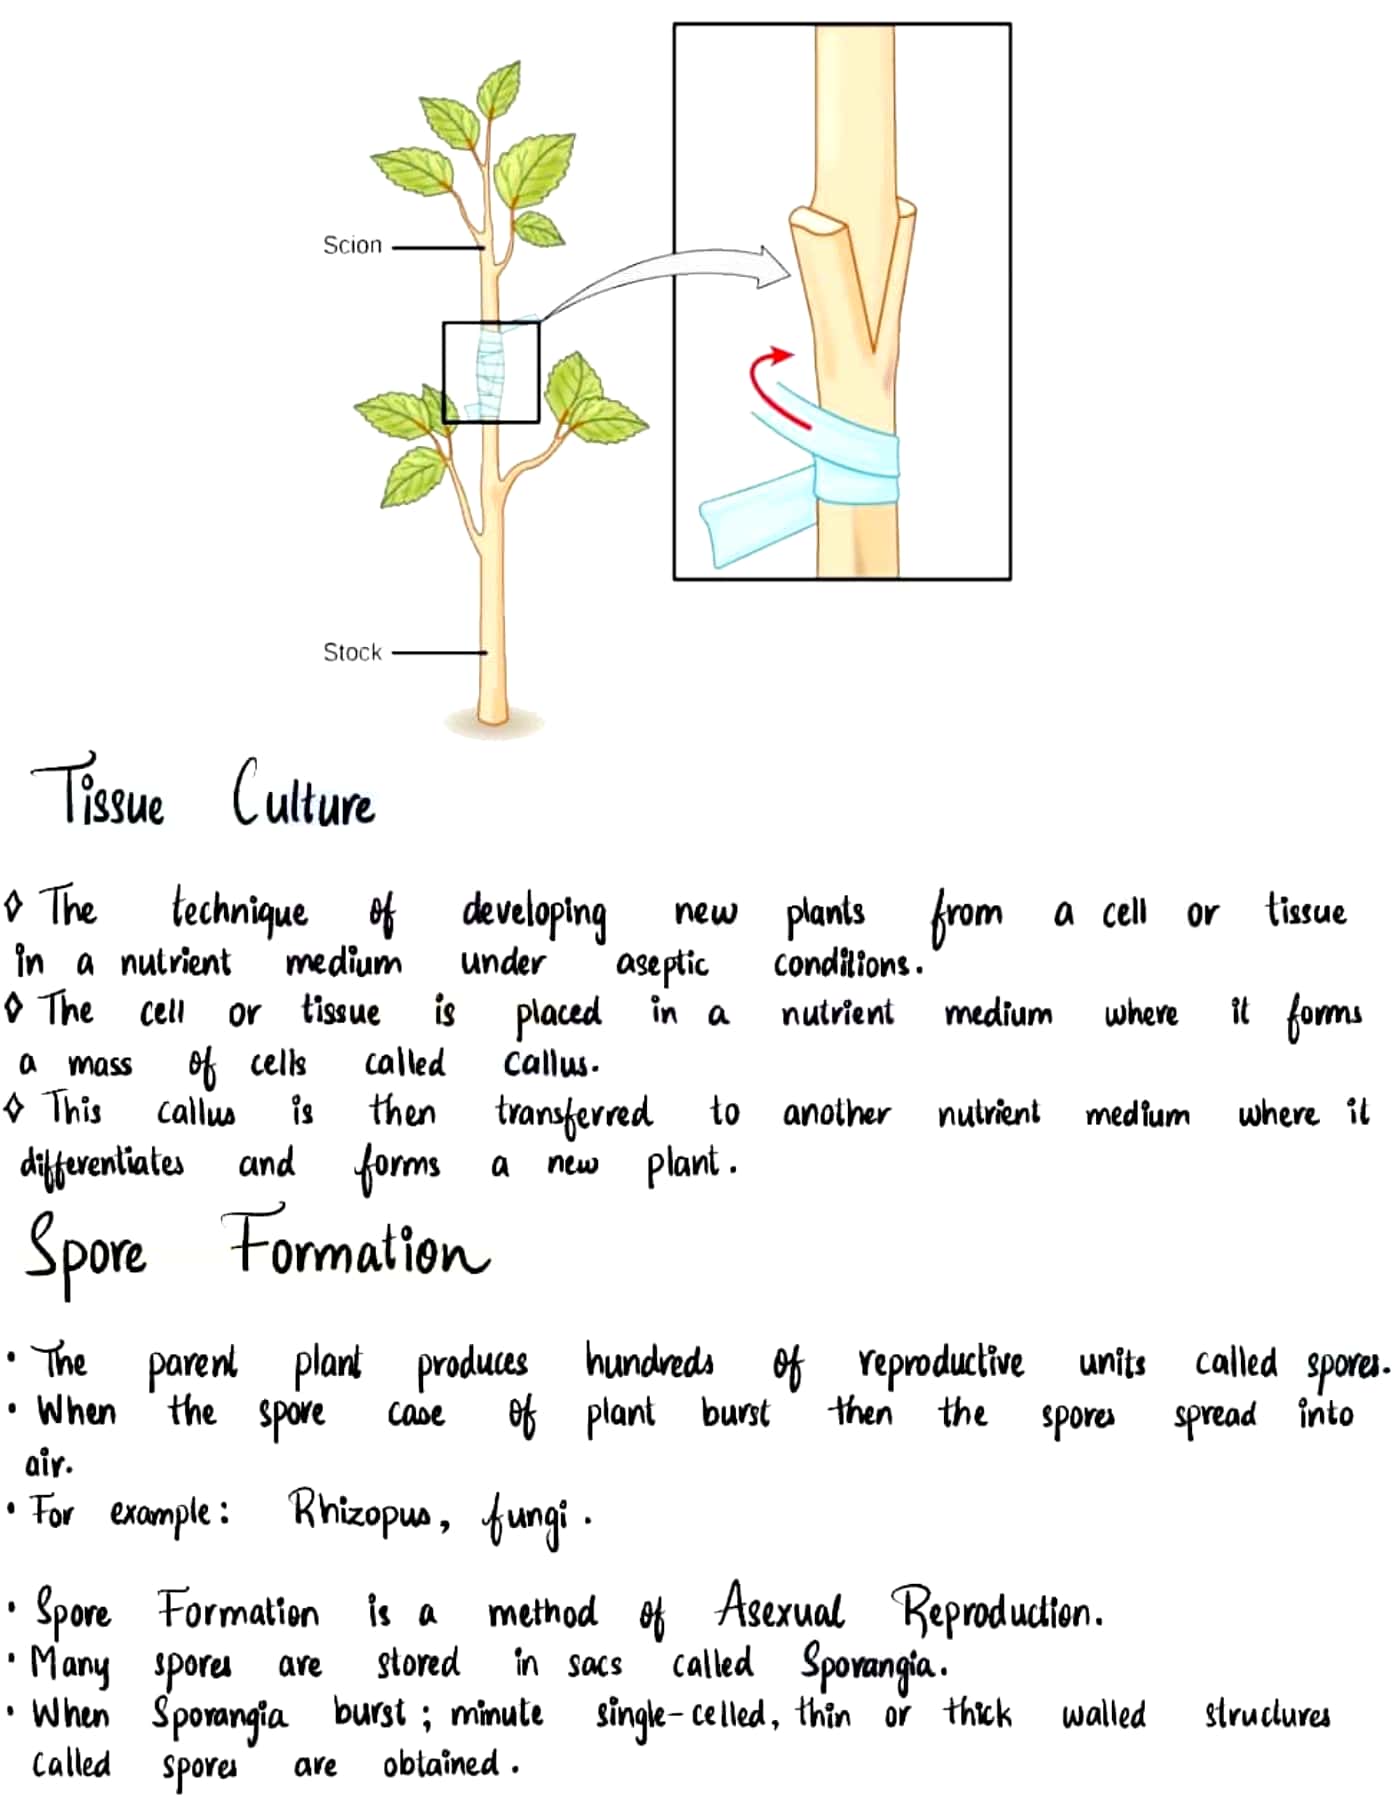 Scion
Stock
Tissue Culture
◊ The technique of developing new plants from a cell or tissue
in a nutrient medium under aseptic conditions.
◊ The cell or tissue is placed in a nutrient medium where it forms
a mass of cells called callus.
◊ This callus is then transferred to another nutrient medium where it
differentiates and forms a new plant.
Spore Formation
• The parent plant produces hundreds of reproductive units called spores.
• When the spore case of plant burst then the spores spread into
air.
• For example: Rhizopus, fungi.
• Spore Formation is a method of Asexual Reproduction.
• Many spores are stored in sacs called Sporangia.
• When Sporangia burst; minute single-celled, thin or thick walled structures
called spores are obtained.